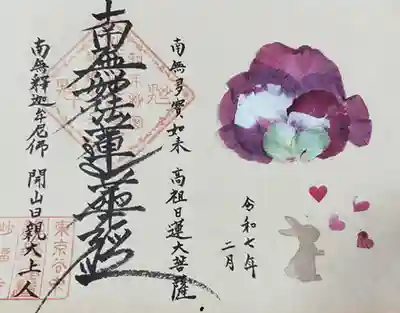 南無多寶如来 高祖日蓮大菩薩
南無妙法蓮華經
南無釋迦牟尼佛 開山日親大上人
令和七年
二月
東京谷中
妙福寺